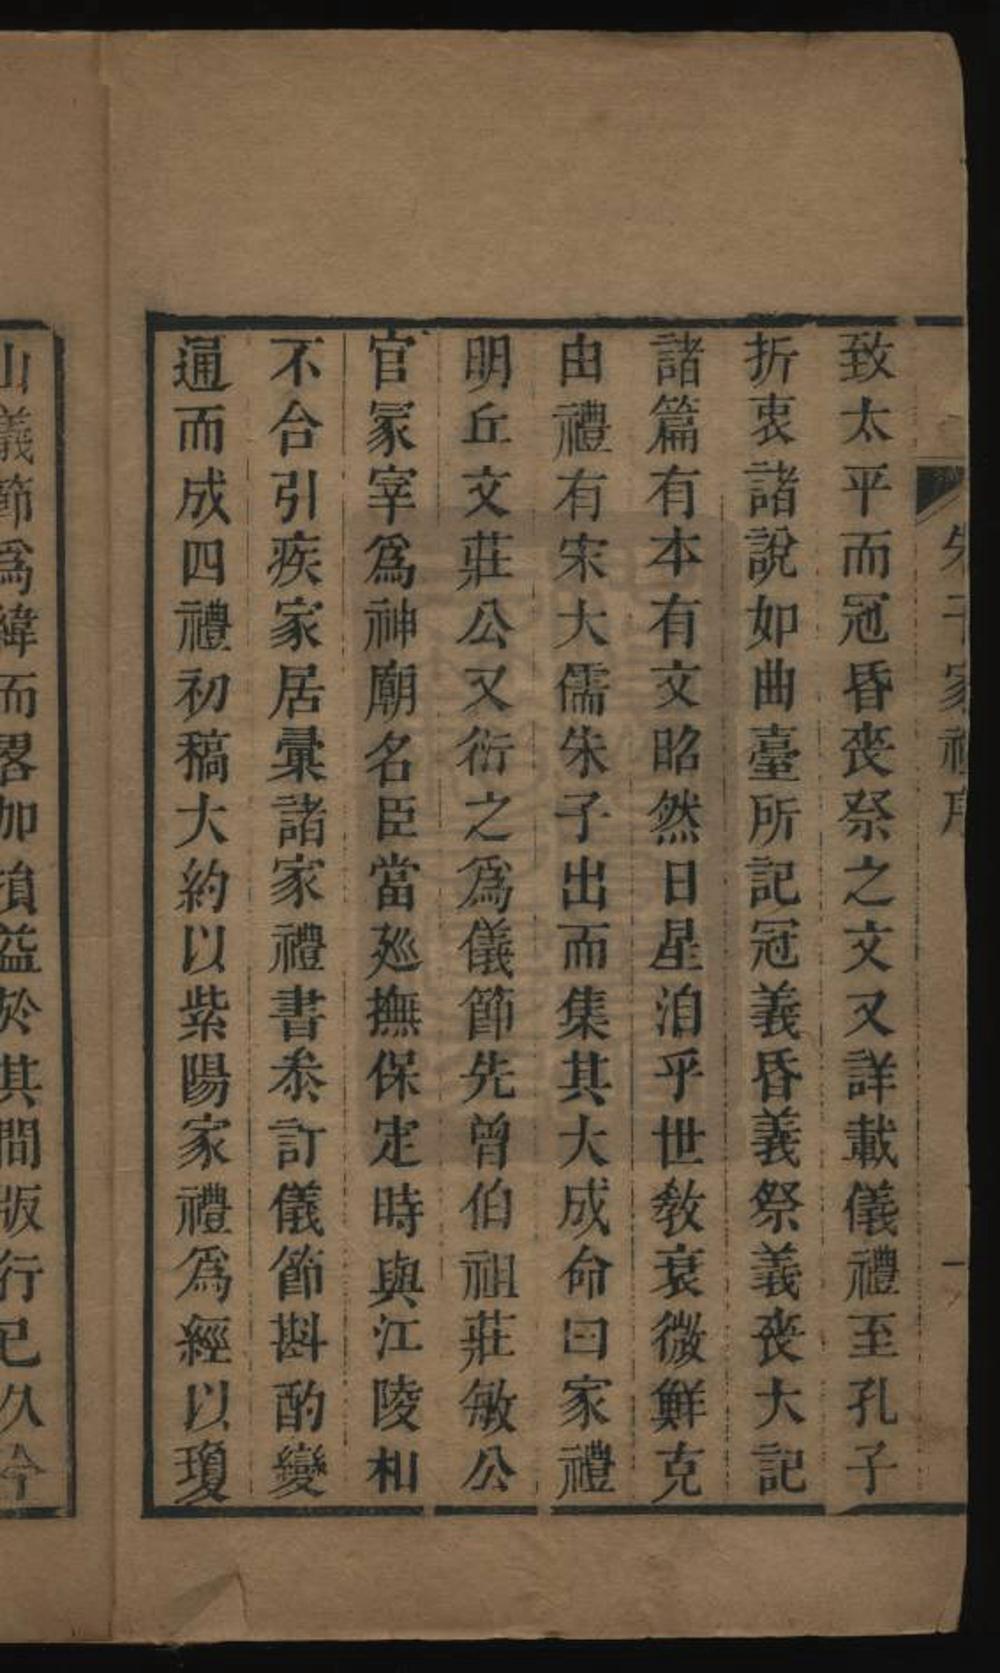 朱子家禮序
一
致太平而冠昏喪祭之文又詳載儀禮至孔子
折衷諸說如曲臺所記冠義昏義祭義喪大記
諸篇有本有文昭然日星洎乎世敎衰微鮮克
由禮有宋大儒朱子出而集其大成命曰家禮
明丘文莊公又衍之爲儀節先曾伯祖莊敏公
官冢宰爲神廟名臣當廵撫保定時與江陵相
不合引疾家居彚諸家禮書叅訂儀節斟酌變
通而成四禮初稿大約以紫陽家禮爲經以瓊
山儀節爲緯而畧加損益於其間版行已久今